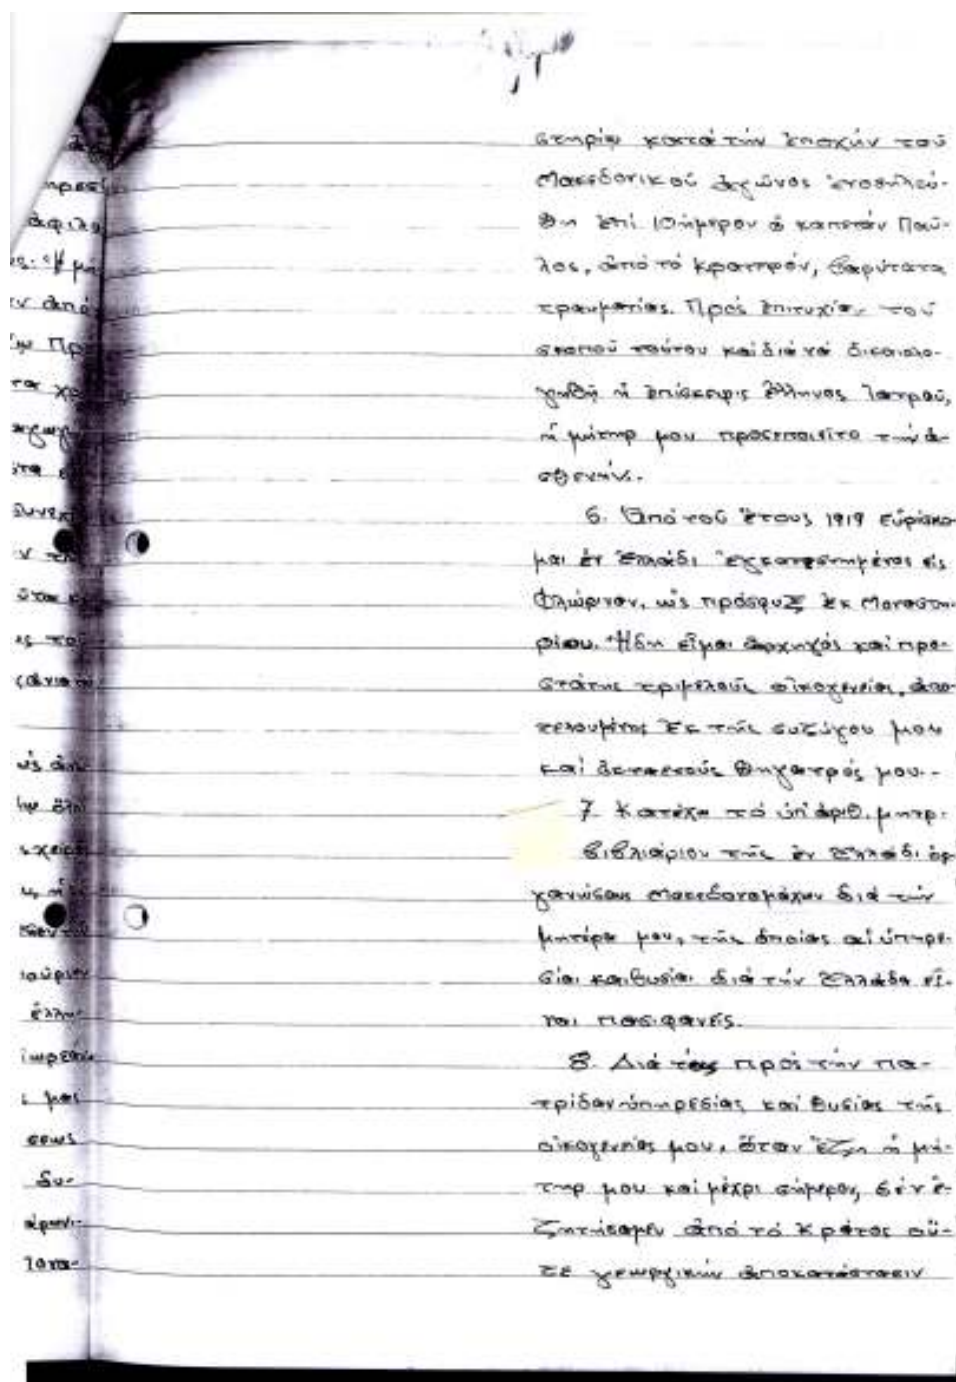 στηρίῳ κατά τήν ἐποχήν τοῦ
Μακεδονικοῦ ἀγῶνος ἐνοσηλεύ-
θη ἐπί 10ήμερον ὁ καπετάν Παῦ-
λος, ἀπό τό Κρατερόν, βαρύτατα
τραυματίας. Πρός ἐπιτυχίαν τοῦ
σκοποῦ τούτου καί διά νά δικαιολο-
γηθῇ ἡ ἐπίσκεψις Ἕλληνος Ἰατροῦ,
ἡ μήτηρ μου προσεποιεῖτο τήν ἀ-
σθενῆ.
6. Ἀπό τοῦ ἔτους 1919 εὑρίσκο-
μαι ἐν Ἑλλάδι ἐγκατεστημένος εἰς
Φλώριναν, ὡς πρόσφυξ ἐκ Μοναστη-
ρίου. Ἤδη εἶμαι ἀρχηγός καί προ-
στάτης τριμελοῦς οἰκογενείας, ἀπο-
τελουμένης ἐκ τῆς συζύγου μου
καί ὀκταετοῦς θυγατρός μου.-
7. Κατέχω τό ὑπ' ἀριθ. μητρ.
βιβλιάριον τῆς ἐν Ἑλλάδι ὀρ
γανώσεως Μακεδονομάχων διά τήν
μητέρα μου, τῆς ὁποίας αἱ ὑπηρε-
σίαι καί θυσίαι διά τήν Ἑλλάδα εἶ-
ναι πασιφανεῖς.
8. Διά τάς πρός τήν πα-
τρίδαν ὑπηρεσίας καί θυσίας τῆς
οἰκογενείας μου, ὅταν ἔζη ἡ μή-
τηρ μου καί μέχρι σήμερον, δέν ἐ-
ζητήσαμεν ἀπό τό Κράτος οὔ-
τε γεωργικήν ἀποκατάστασιν